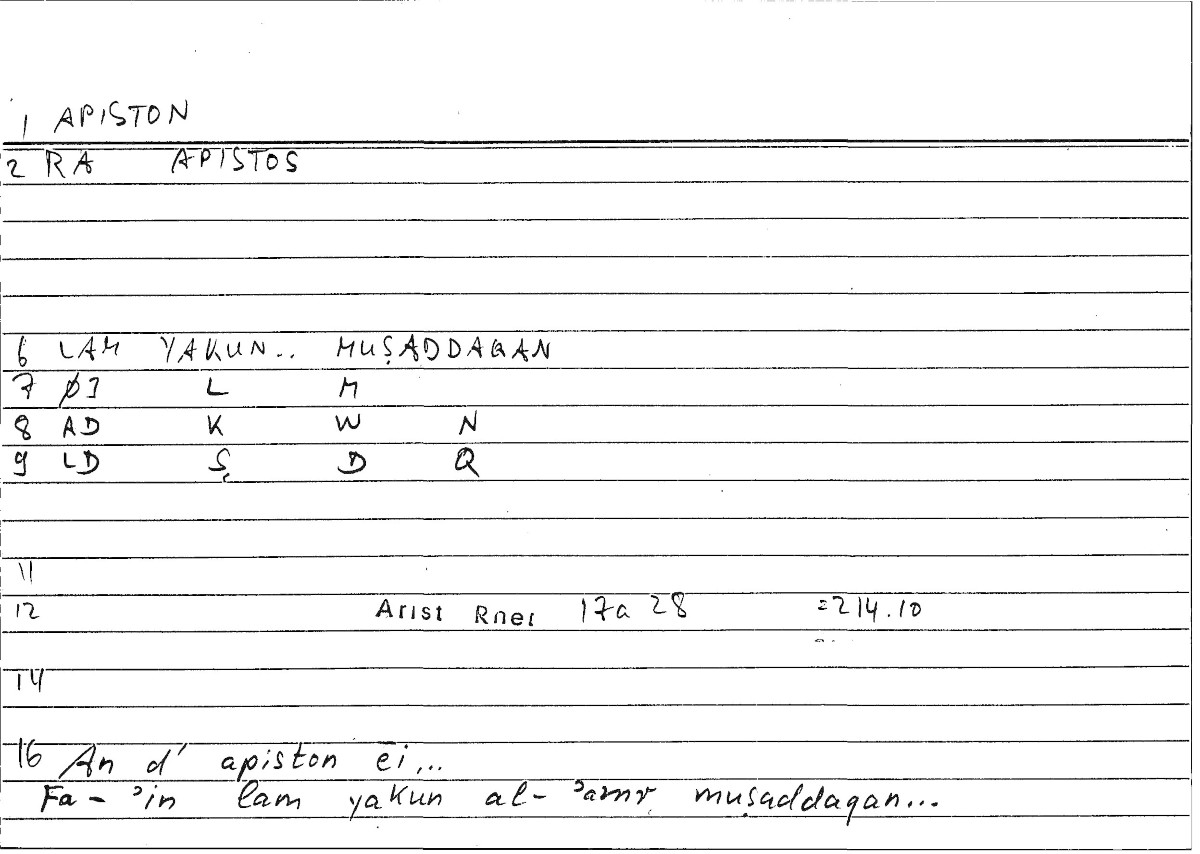 1 APISTON
2 RA APISTOS
6 LAM YAKUN.. MUṢADDAQAN
7 ØJ L M
8 AD K W N
9 LD Ṣ D Q
11
12 Arist Rhet 17a 28 =214.10
14
16 An d' apiston ei...
Fa-ʾin lam yakun al-ʾamr muṣaddaqan...